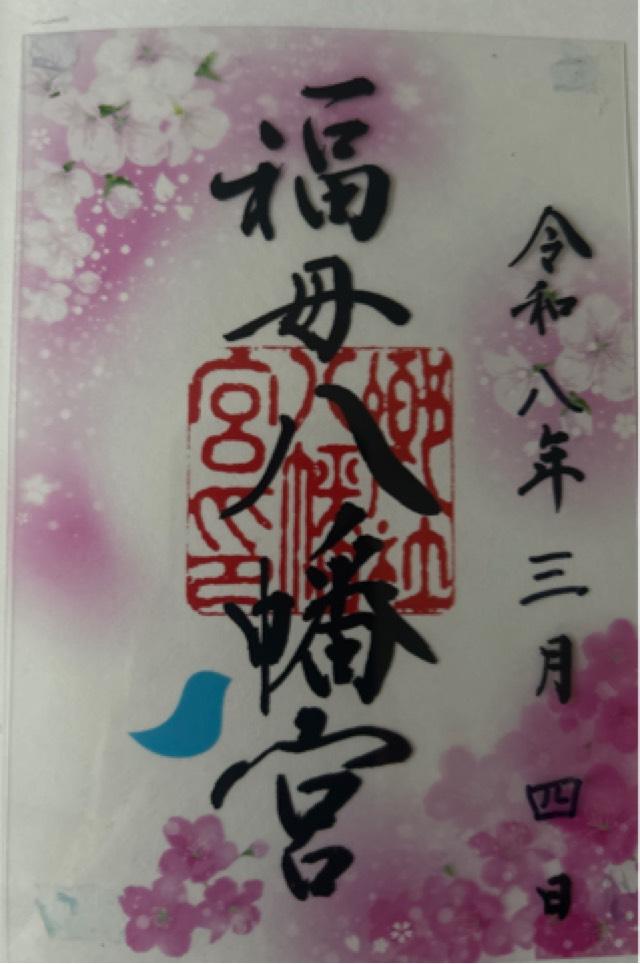 令和八年三月四日
福母八幡宮
郷社
八幡
宮印